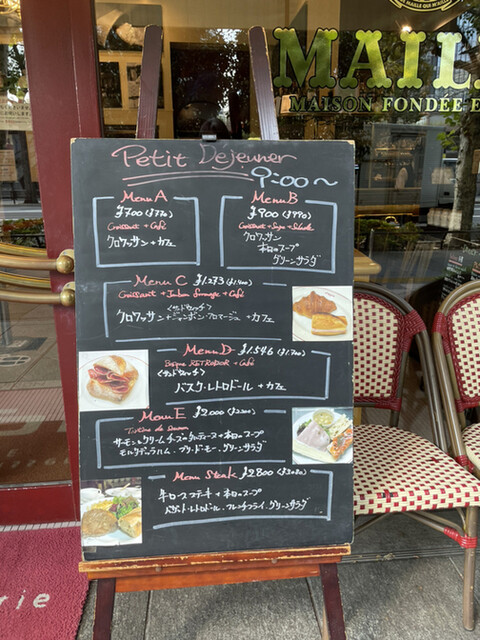 MAIL
MAISON FONDÉE E
Petit Dejeuner
9:00~
Menu A
¥700 (¥770)
Croissant + Café
クロワッサン + カフェ
Menu B
¥900 (¥990)
Croissant + Soupe + Salade
クロワッサン
本日のスープ
グリーンサラダ
Menu C ¥1.273 (¥1.400)
Croissant + Jambon fromage + Café
<サンドウィッチ>
クロワッサン+ジャンボン・フロマージュ + カフェ
Menu D ¥1.546 (¥1.700)
Basque RETRODOR + Café
<サンドウィッチ>
バスク・レトロドール + カフェ
Menu E ¥2000 (¥2200)
Tartine de Saumon
サーモンとクリームチーズのタルティーヌ + 本日のスープ
モルタデッラハム・ブリ・ド・モー・グリーンサラダ
Menu Steak ¥2800 (¥3080)
牛ロースステーキ + 本日のスープ
バゲット・レトロドール・フレンチフライ・グリーンサラダ
rie